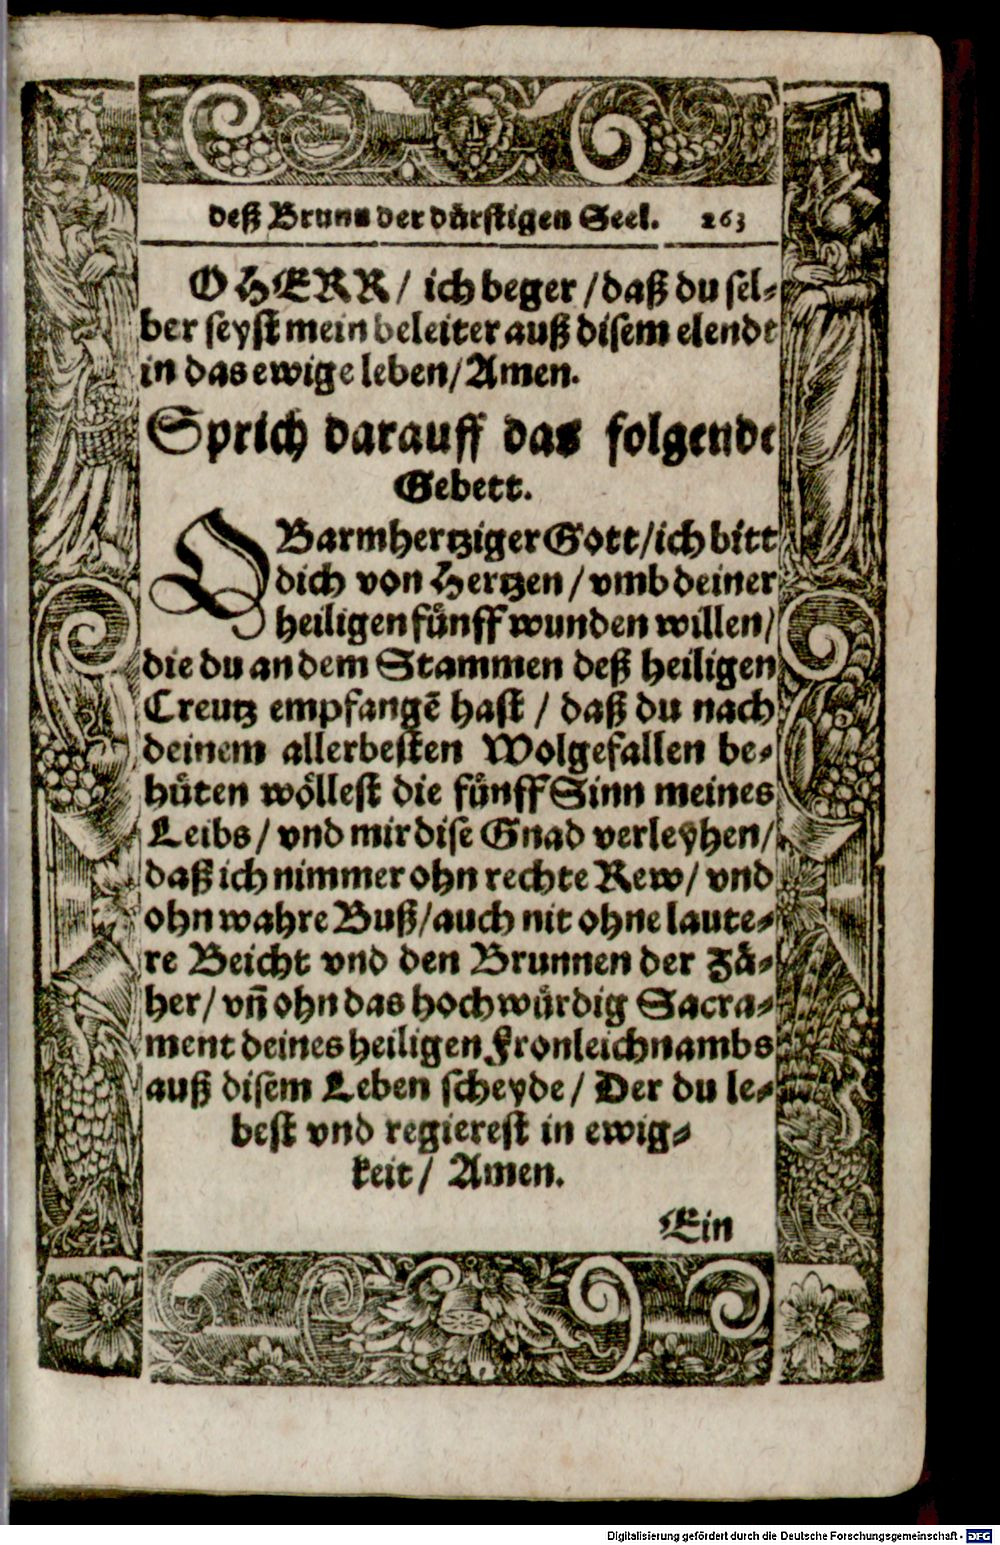 deß Brunn der dürstigen Seel. 263
O HERR / ich beger / daß du sel-
ber seyst mein beleiter auß disem elende
in das ewige leben / Amen.
Sprich darauff das folgende
Gebett.
O Barmhertziger Gott / ich bitt
dich von Hertzen / vmb deiner
heiligen fünff wunden willen /
die du an dem Stammen deß heiligen
Creutz empfangẽ hast / daß du nach
deinem allerbesten Wolgefallen be-
hüten wöllest die fünff Sinn meines
Leibs / vnd mir dise Gnad verleyhen /
daß ich nimmer ohn rechte Rew / vnd
ohn wahre Buß / auch nit ohne laute-
re Beicht vnd den Brunnen der Zä-
her / vñ ohn das hochwürdig Sacra-
ment deines heiligen Fronleichnambs
auß disem Leben scheyde / Der du le-
best vnd regierest in ewig-
keit / Amen.
Ein
Digitalisierung gefördert durch die Deutsche Forschungsgemeinschaft - DFG